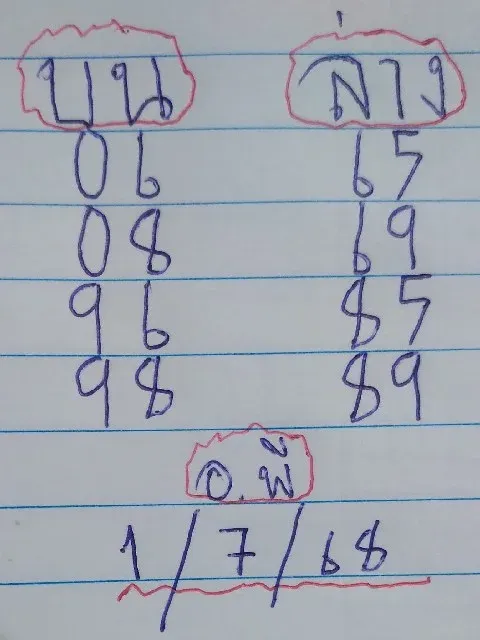 บน ล่าง
06 65
08 69
96 85
98 89
อ.พี
1/7/68